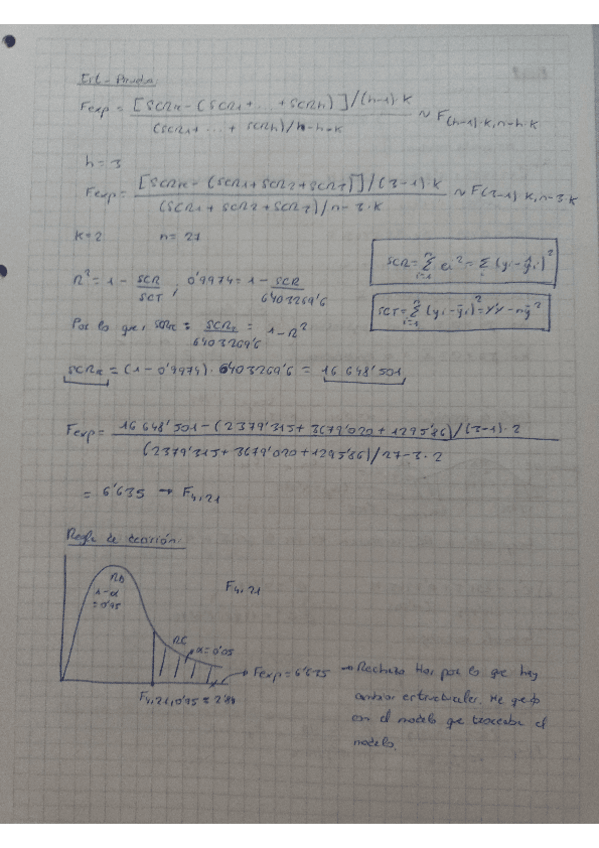 Est-Prueba:
Fexp = [SCRR - (SCR1 + ... + SCRh)] / (h-1)·K / (SCR1 + ... + SCRh) / n-h·K ~ F(h-1)·K, n-h·K
h = 3
Fexp = [SCRR - (SCR1 + SCR2 + SCR3)] / (3-1)·K / (SCR1 + SCR2 + SCR3) / n-3·K ~ F(3-1)·K, n-3·K
K=2 n= 27
SCR = Σ ei² = Σ (yi - ŷi)²
R² = 1 - SCR/SCT ; 0'9974 = 1 - SCR/6403269'6
SCT = Σ (yi - ȳi)² = Y'Y - nȳ²
Por lo que, SCRR = SCRR/6403269'6 = 1-R²
SCRR = (1 - 0'9974)·6403269'6 = 16 648'501
Fexp = 16 648'501 - (2379'315 + 3679'020 + 1295'86) / (3-1)·2 / (2379'315 + 3679'020 + 1295'86) / 27-3·2
= 6'635 → F4,21
Regla de decisión:
1-α
= 0'95
F4,21
RC
α=0'05
Fexp=6'635 → Rechazo H0, por lo que hay
F4,21,0'95 = 2'84
cambios estructurales. Me quedo
con el modelo que trocea el
modelo.